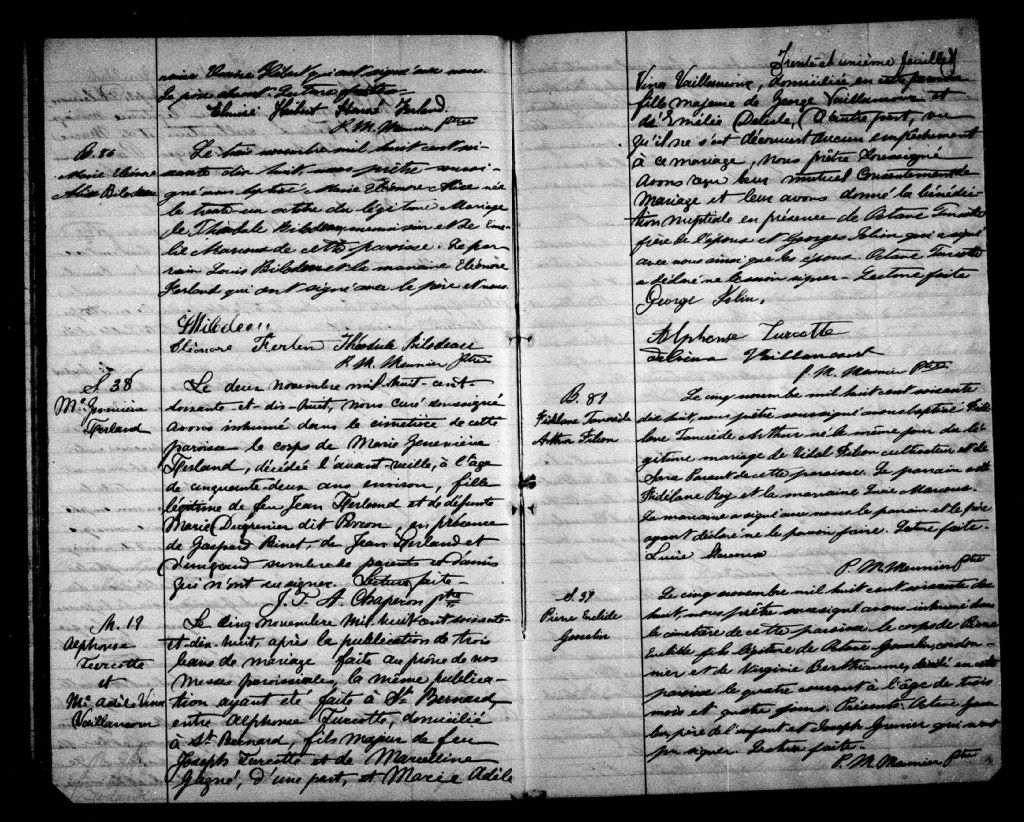 raine Elmire Hébert qui ont signé avec nous.
Le père absent. Lecture faite
Elmire Hébert Honoré Ferland
P. M. Meunier Ptre
B. 80
Marie Eléonore
Alice Bilodeau
Le trois novembre mil huit cent soi-
xante dix huit, nous prêtre soussi-
gné avons baptisé Marie Eléonore Alice née
le trente un octobre du légitime Mariage
de Théodule Bilodeau, menuisier et de Emé-
lie Marcoux de cette paroisse. Le par-
rain Louis Bilodeau et la marraine Eléonore
Ferland qui ont signé avec le père et nous.
LBilodeau
Eléonore Ferlan Théodule Bilodeau
P. M. Meunier Ptre
S. 38
Me. Geneviève
Ferland
Le deux novembre mil-huit-cent-
soixante-et-dix-huit, nous curé soussigné
avons inhumé dans le cimetière de cette
paroisse le corps de Marie Geneviève
Ferland, décédée l'avant-veille, à l'âge
de cinquante-deux ans environ, fille
légitime de feu Jean Ferland et de défunte
Marie Dugrenier dit Perron, en présence
de Gaspard Binet, de Jean Ferland et
d'un grand nombre de parents et d'amis
qui n'ont su signer. Lecture faite.
J. T. A. Chaperon ptre
M. 19
Alphonse
Turcotte
et
Me. Adèle Vina
Vaillancour
Le cinq novembre mil-huit-cent-soixante-
et-dix-huit, après la publication de trois
bans de mariage faite au prône de nos
messes paroissiales, la même publica-
tion ayant été faite à St. Bernard,
entre Alphonse Turcotte, domicilié
à St. Bernard, fils majeur de feu
Joseph Turcotte et de Marcelline
Gagné, d'une part, et Marie Adèle
Trente et unième feuillet
Vina Vaillancour, domiciliée en cette paroisse
fille majeure de George Vaillancour et
d'Emélie Delisle, d'autre part, vu
qu'il ne s'est découvert aucun empêchement
à ce mariage, nous prêtre soussigné
avons reçu leur mutuel consentement de
mariage et leur avons donné la bénédic-
tion nuptiale en présence de Octave Turcotte
frère de l'époux et Georges Folin qui a signé
avec nous ainsi que les époux. Octave Turcotte
a déclaré ne le savoir signer. Lecture faite
George Folin.
Alphonse Turcotte
Vaillancourt
P. M. Meunier Ptre
B. 81
Fidélane Tancrède
Arthur Filion
Le cinq novembre mil huit cent soixante
dix huit, nous prêtre soussigné avons baptisé Fidé-
lane Tancrède Arthur né le même jour du lé-
gitime mariage de Vidal Filion cultivateur et de
Sara Parent de cette paroisse. Le parrain a été
Fidélane Roy et la marraine Lucie Marcoux.
La marraine a signé avec nous le parrain et le père
ayant déclaré ne le pouvoir faire. Lecture faite.
Lucie Marcoux
P. M. Meunier Ptre
S. 39
Pierre Euclide
Gosselin
Le cinq novembre mil huit cent soixante dix
huit, nous prêtre soussigné avons inhumé dans
le cimetière de cette paroisse le corps de Pierre
Euclide fils légitime de Octave Gosselin, cordon-
nier et de Virginie Berthiaume, décédé en cette
paroisse le quatre courant à l'âge de trois
mois et quatre jours. Présents: Octave Gosse-
lin, père de l'enfant et Joseph Grenier qui n'ont
pu signer. Lecture faite.
P. M. Meunier Ptre